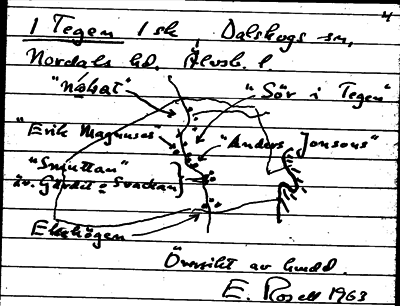 4
1 Tegen 1 sk, Dalskogs sn,
Nordals hd. Älvsb. l.
"Nåhat" "Sör i Tegen"
"Erik Magnuses" "Anders Jonsons"
"Smuttan"
äv. Gärdet o Svackan
Ekehögen
Översikt av hundd.
E. Rosell 1963